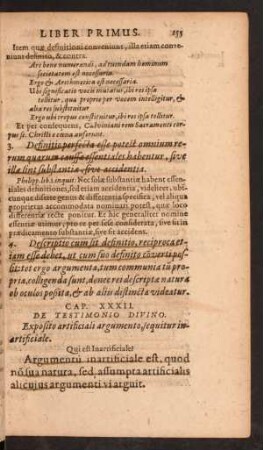 LIBER PRIMUS. 155
Item quæ definitioni conveniunt, illa etiam conve-
niunt definito, & contra.
Ars bene numerandi, ad tuendam hominum
societatem est necessaria.
Ergo & Arithmetica est necessaria.
Ubi significatio vocis mutatur, ibi res ipsa
tollitur, quæ proprie per vocem intelligitur, &
alia res substituitur
Ergo ubi tropus constituitur, ibi res ipsa tollitur.
Et per consequens, Calviniani rem Sacramenti cor-
pus Christi e cœna auferunt.
3. Definitio perfecta esse potest omnium re-
rum quarum caussæ essentiales habentur, sive
illa sint substantia, sive accidentia.
Philip. lib. 1. inquit. Nec solæ substantiæ habent essen-
tiales definitiones, sed etiam accidentia, videlicet, ubi-
cunque genus & differentia specifica, vel
proprietas nominari potest, quæ loco
differentiæ recte ponitur. Et hic generaliter nomine
utimur, pro re per sese considerata, sive in
prædicamento substantia, sive sit accidens.
4. Descriptio cum sit definitio, reciproca et-
iam esse debet, ut cum suo definito converti pos-
sit: et ergo argumenta, tum communia tū pro-
pria, colligenda sunt, donec res descripta natura
ob oculos posita, & ab aliis distincta videatur.
CAP. XXXII.
DE TESTIMONIO DIVINO.
Exposito artificiali argumento, sequitur in-
artificiale.
Quid est Inartificiale?
Argumentū inartificiale est, quod
nō sua natura, sed assumpta artificialis
alicujus argumenti vi arguit.